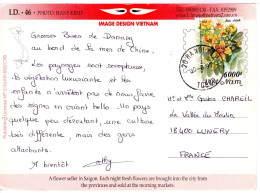 I.D. - 46 • PHOTO HANS KEMP
IMAGE DESIGN VIETNAM
Grosses Bises de Danang
au bord de la mer de Chine.
Les paysages sont somptueux,
la végétation luxuriante et les
enfants n'arrêtent pas de nous faire
des signes en criant hello. Un pays
quelque peu déroutant, une culture
bien différente mais des gens
attachants.
A bientôt.
6000đ
Nam
Mr et Mme Guidos CHAREIL
La Vallée du Moulin
18400 LUNERY
FRANCE
A flower seller in Saigon. Each night fresh flowers are brought into the city from
the provinces and sold at the morning markets.